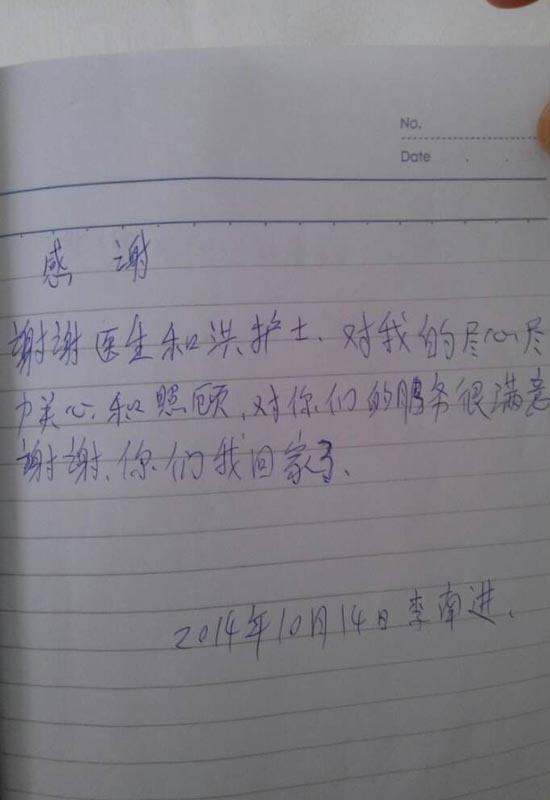 No.
Date . .
感 谢
谢谢医生和洪护士、对我的尽心尽
力关心和照顾,对你们的服务很满意
谢谢、你们我回家了、
2014年10月14日李南进、